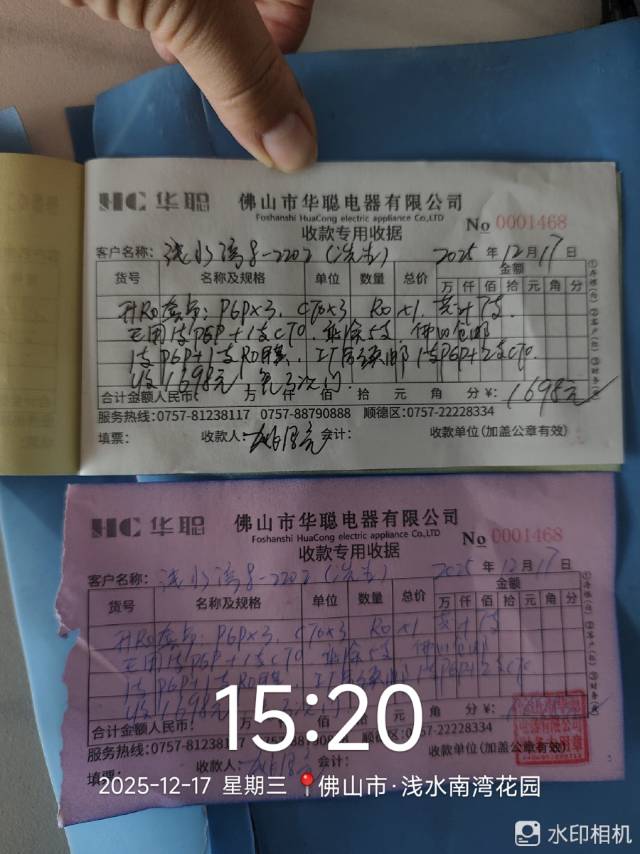 HC 华聪 佛山市华聪电器有限公司
Foshanshi HuaCong electric appliance Co.,LTD
No 0001468
收款专用收据
客户名称: 浅水湾 8-2202 (先生) 2025 年 12 月 17 日
货号 名称及规格 单位 数量 总价 金额
万 仟 佰 拾 元 角 分
PGP×3. CTO×3 RO×1. 共计7支.
已用1支PGP+1支CTO. 剩余5支
1支PGP+1支RO膜. 1支PGP+2支CTO.
收1698元
合计金额人民币: 万 仟 佰 拾 元 角 分 ¥: 1698元
服务热线:0757-81238117 0757-88790888 顺德区:0757-22228334
填票: 收款人: 会计: 收款单位(加盖公章有效)
HC 华聪 佛山市华聪电器有限公司
Foshanshi HuaCong electric appliance Co.,LTD
No 0001468
收款专用收据
客户名称: 浅水湾 8-2202 (先生) 2025 年 12 月 17 日
货号 名称及规格 单位 数量 总价 金额
万 仟 佰 拾 元 角 分
PGP×3. CTO×3 RO×1. 共计7支
已用1支PGP+1支CTO 剩余5支
1支PGP+1支RO膜 1支PGP+2支CTO
合计金额人民币: 万 佰 元 角 分 ¥:
服务热线:0757-81238117 22228334
填票: 收款人: 会计: 收款单位(加盖公章有效)
15:20
2025-12-17 星期三 佛山市·浅水南湾花园
水印相机